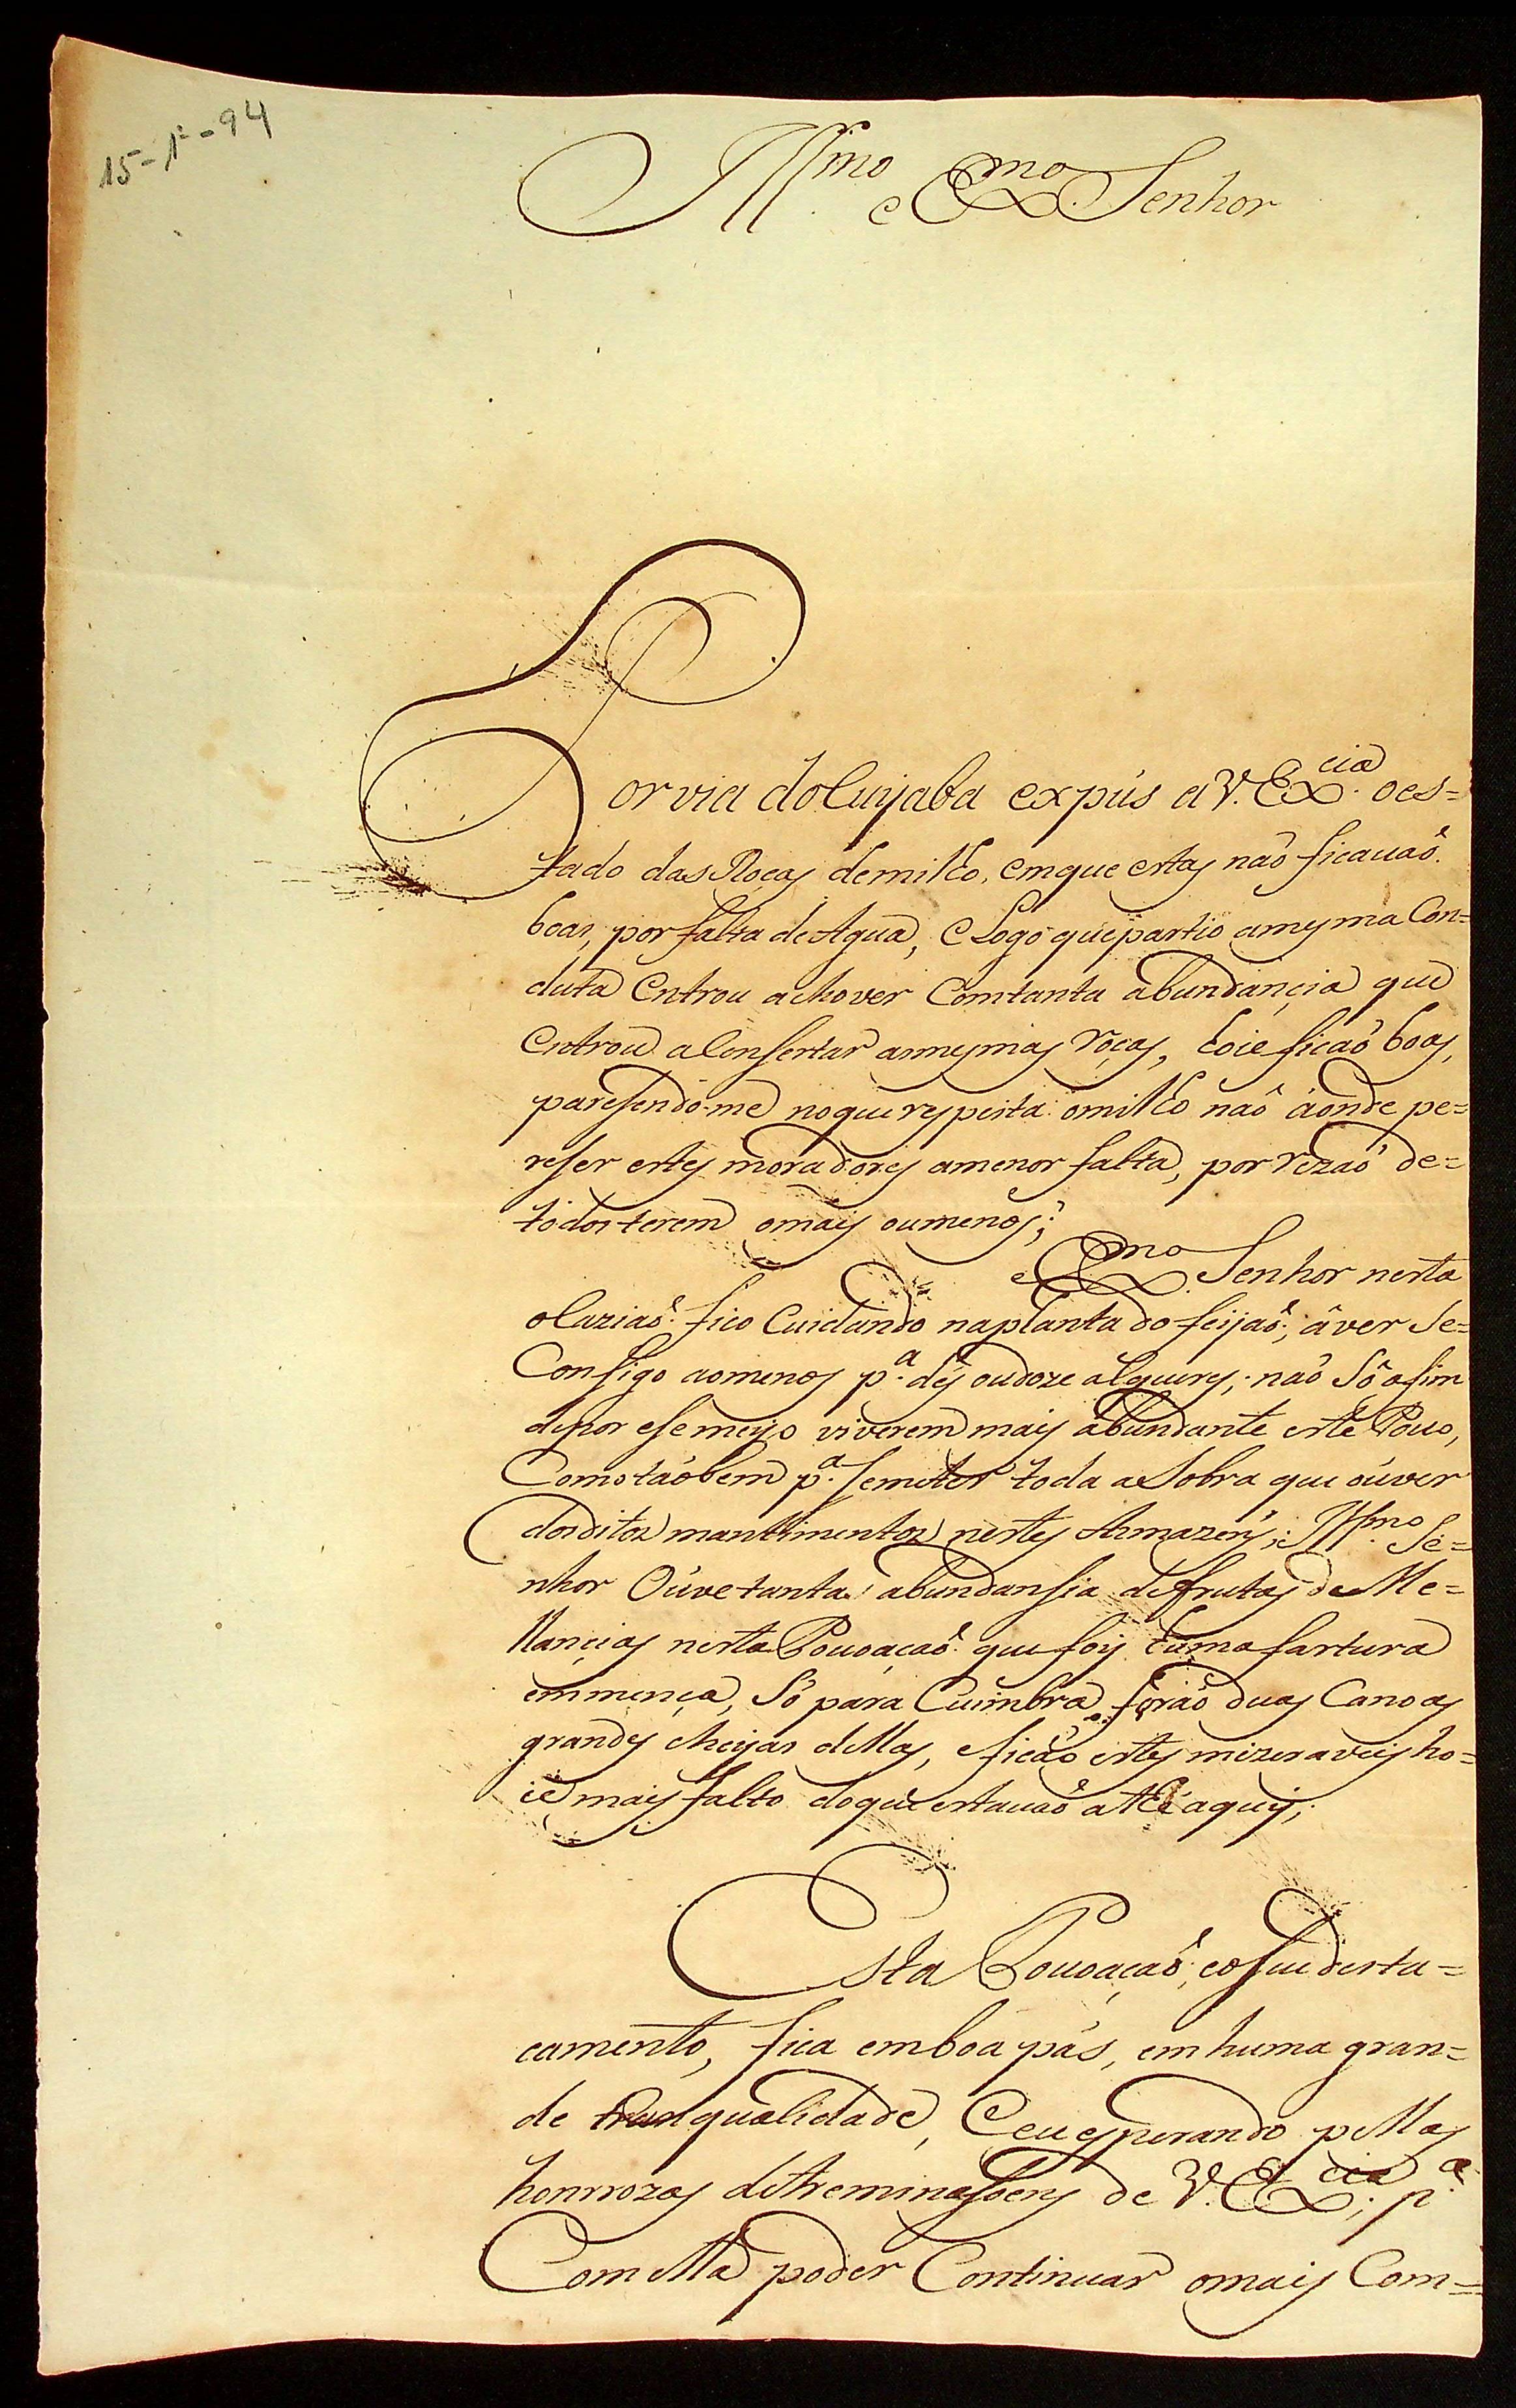 15-1º-94
Illmo e Exmo Senhor
Por via do Cuyaba expús a V. Excia. o es=
tado das Roças de milho, em que estas não ficauaõ.
boas, por falta de Agua, e Logo que partio a mesma Con=
duta Entrou a chover Com tanta abundançia que
Entrou a Consertar as mesmas roças, hoie ficaõ boas,
paresendo-me no que respeita o milho naõ áonde pe=
reser estes moradores a menor falta, por rezaõ de=
todos terem o mais ou menos;
e Exmo. Senhor nesta
oCaziaõ. fico Cuidando na planta do feijaõ; á ver Se=
Consigo ao menos pª. dés ou doze alqueires; naõ Só afim
de por ese meyo viverem mais abundante este Pouo,
Como taõbem pª. Se meter toda a Sobra que ouver
dos ditos mantimentos nestes Armazens; Illmo. Se=
nhor Ouve tanta abundansia de frutas de Me=
llançias nesta Pouoaçaõ. que foy huma fartura
emmença, Só para Cuimbra foraõ duas Canoas
grandes cheyas dellas, e ficaõ estes mizeraveis ho=
ie mais falto do que estauaõ athé aquy;
Esta Pouoaçaõ; e o Seu desta=
camento, fica em boa pás, em huma gran=
de tranqualidade, E eu esperando pellas
honrrozas detreminasoens de V. Excia; pª
Com ella poder Continuar o mais Com=